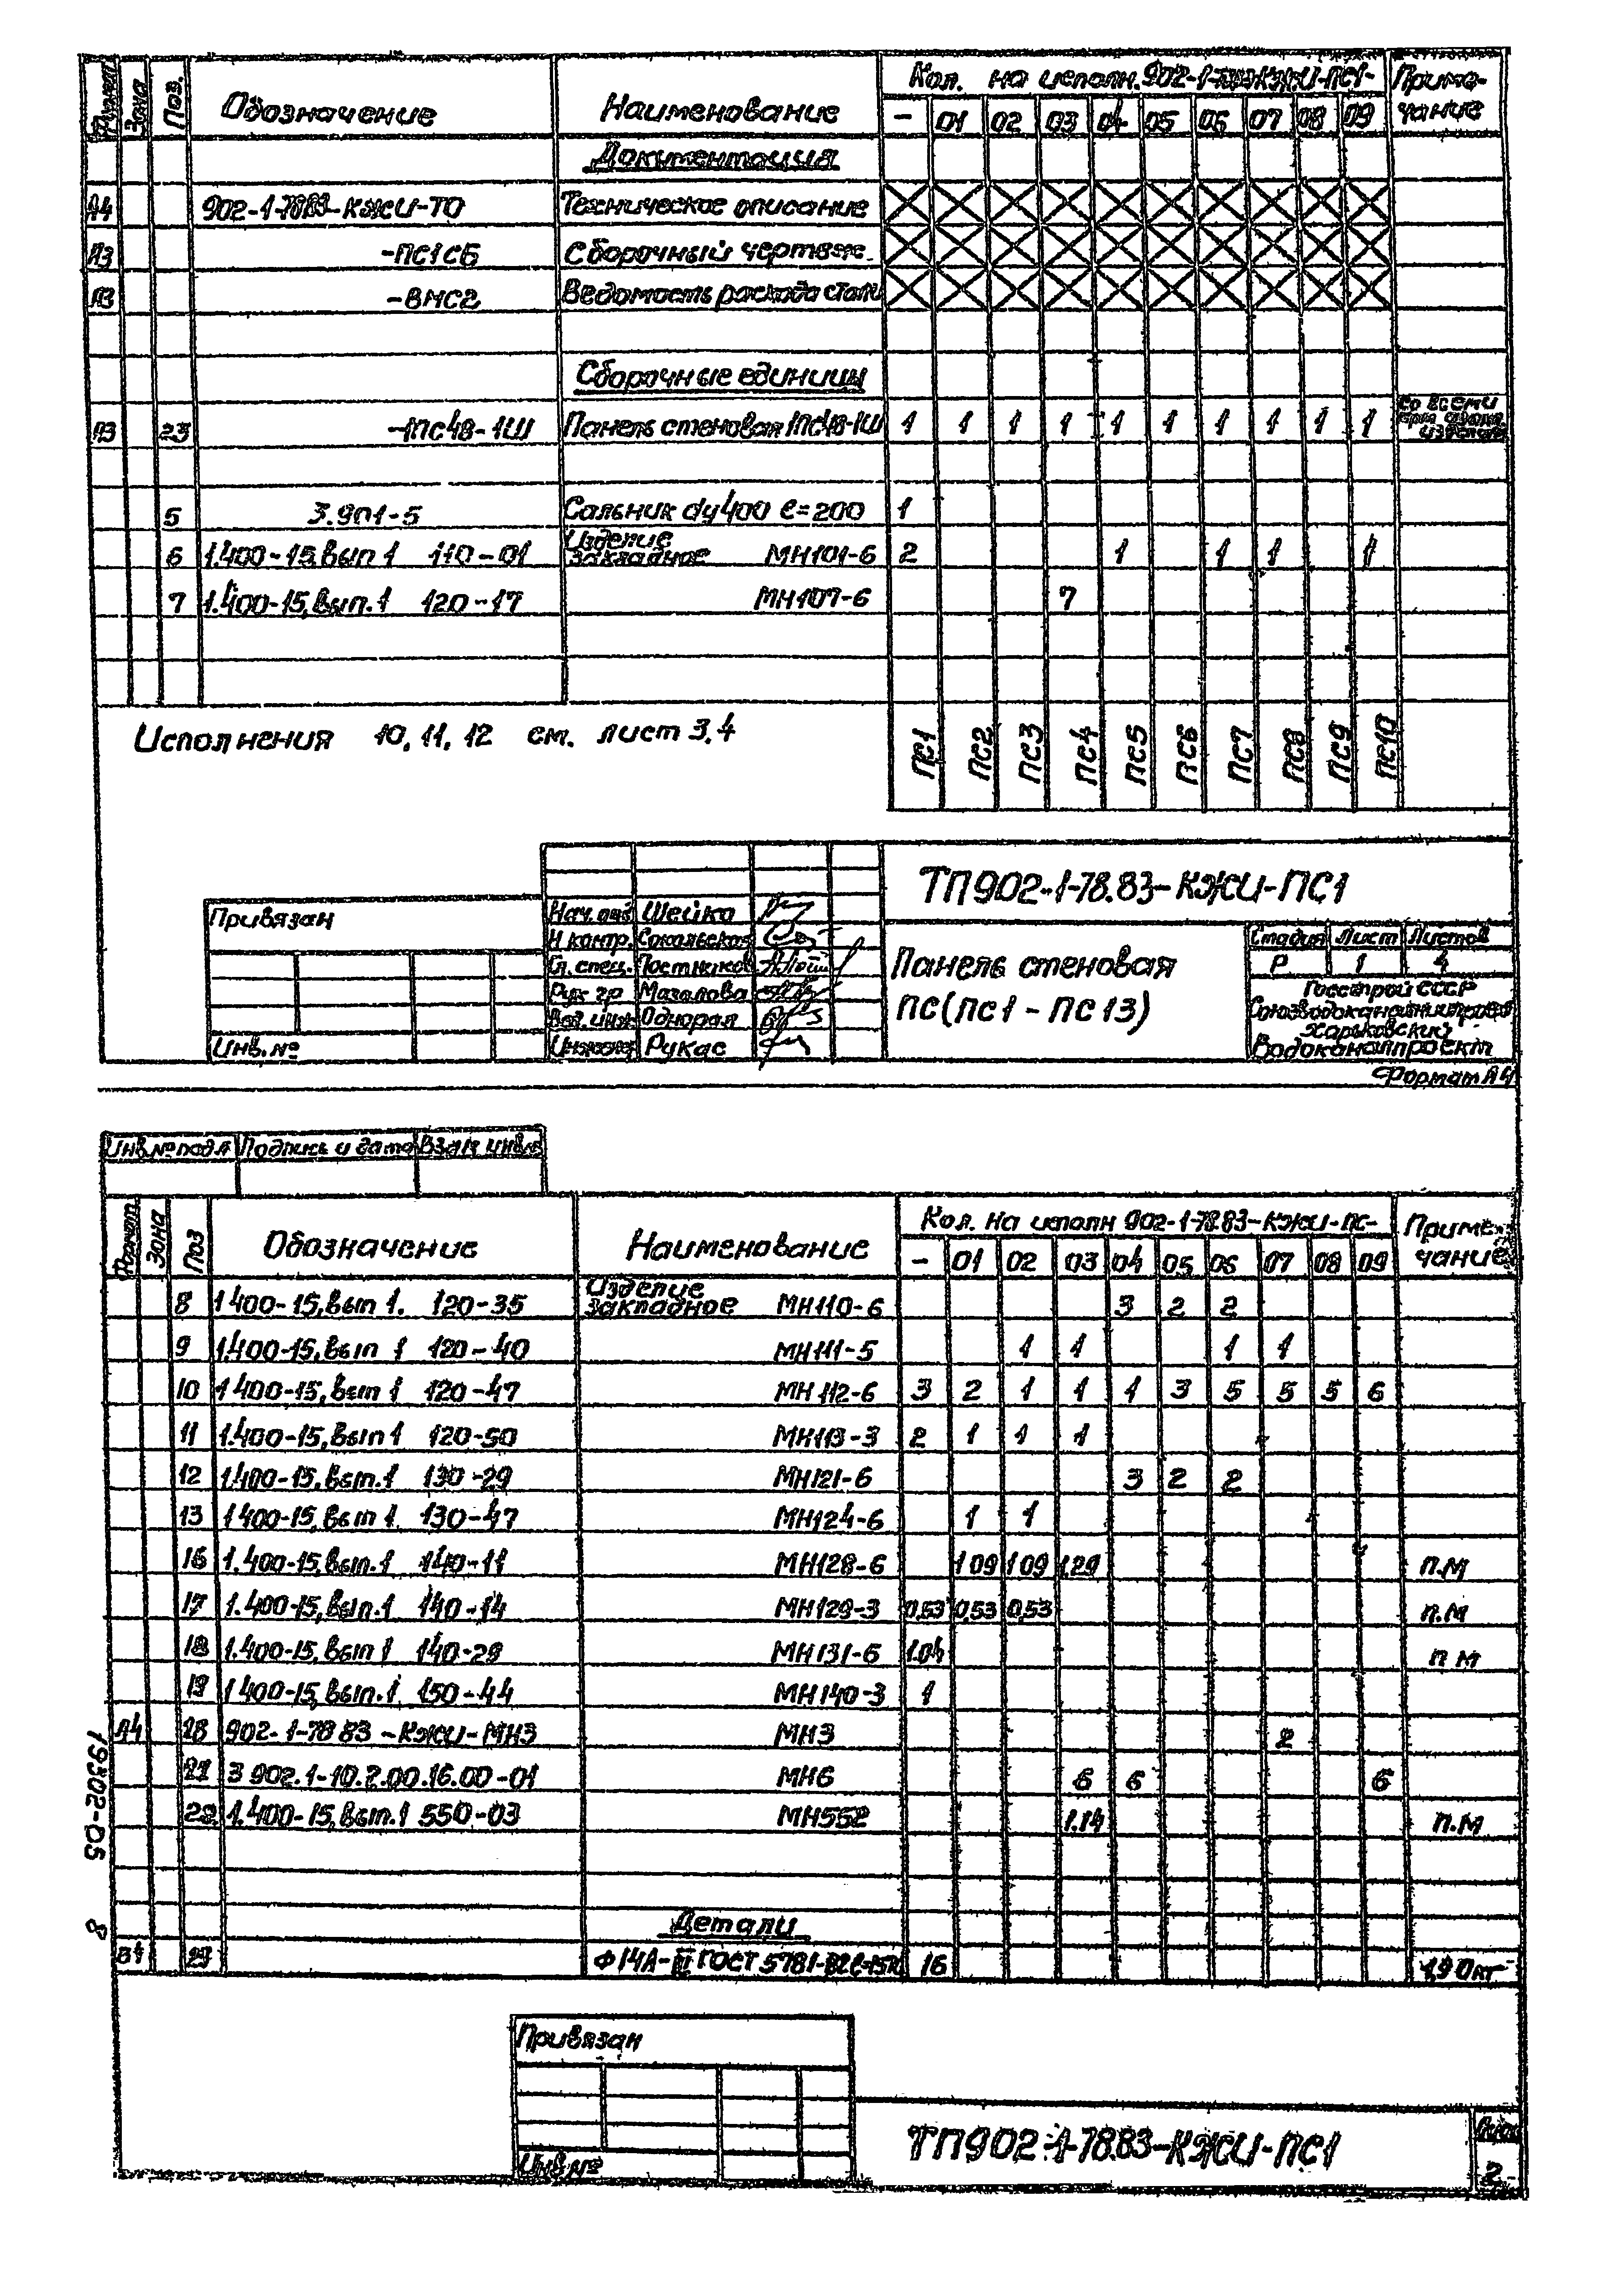 Формат Зона Поз. Обозначение Наименование Кол. на исполн. 902-1-78.83-КЖИ-ПС1- Приме-
чание
- 01 02 03 04 05 06 07 08 09
Документация
А4 902-1-78.83-КЖИ-ТО Техническое описание
А3 -ПС1СБ Сборочный чертеж.
А3 -ВМС2 Ведомость расхода стали
Сборочные единицы
А3 23 -ПС48-1Ш Панель стеновая ПС48-1Ш 1 1 1 1 1 1 1 1 1 1 со всеми
5 3.901-5 Сальник dу400 е=200 1
6 1.400-15.вып 1 110-01 Изделие
закладное МН101-6 2 1 1 1 1
7 1.400-15,вып.1 120-17 МН107-6 7
Исполнения 10, 11, 12 см. лист 3.4
ПС1 ПС2 ПС3 ПС4 ПС5 ПС6 ПС7 ПС8 ПС9 ПС10
ТП902-1-78.83-КЖИ-ПС1
Привязан
Нач. отд Шейко
Н контр. Сокальская
Гл. спец. Постников
Рук гр Мазалова
Вед. инж Однорал
Инженер Рукас
Инв.№
Панель стеновая
ПС(ПС1 - ПС13)
Стадия Лист Листов
Р 1 4
Госстрой СССР
Союзводоканалниипроект
Харьковский
Водоканалпроект
Формат А4
Инв.№подл Подпись и дата Взам инв.№
Формат Зона Поз Обозначение Наименование Кол. на исполн 902-1-78.83-КЖИ-ПС- Приме-
чание
- 01 02 03 04 05 06 07 08 09
8 1400-15,вып 1. 120-35 Изделие
закладное МН110-6 3 2 2
9 1.400-15,вып 1 120-40 МН111-5 1 1 1 1
10 1400-15,вып 1 120-47 МН112-6 3 2 1 1 1 3 5 5 5 6
11 1.400-15,вып 1 120-50 МН113-3 2 1 1 1
12 1.400-15,вып.1 130-29 МН121-6 3 2 2
13 1400-15,вып 1. 130-47 МН124-6 1 1
16 1.400-15,вып.1 140-11 МН128-6 109 109 1.29 п.м
17 1.400-15,вып.1 140-14 МН129-3 0,53 0,53 0,53 п.м
18 1.400-15,вып 1 140-29 МН131-6 1.04 п м
19 1400-15,вып.1 150-44 МН140-3 1
А4 28 902-1-78 83-КЖИ-МН3 МН3 2
3 902.1-10.2.00.16.00-01 МН6 6 6 6
22 1.400-15,вып.1 550-03 МН552 1.14 п.м
Детали
29 Ф14А-III ГОСТ 5781-82 16
19302-05 8
Привязан
Инв№
ТП902-1-78.83-КЖИ-ПС1
Лист
2